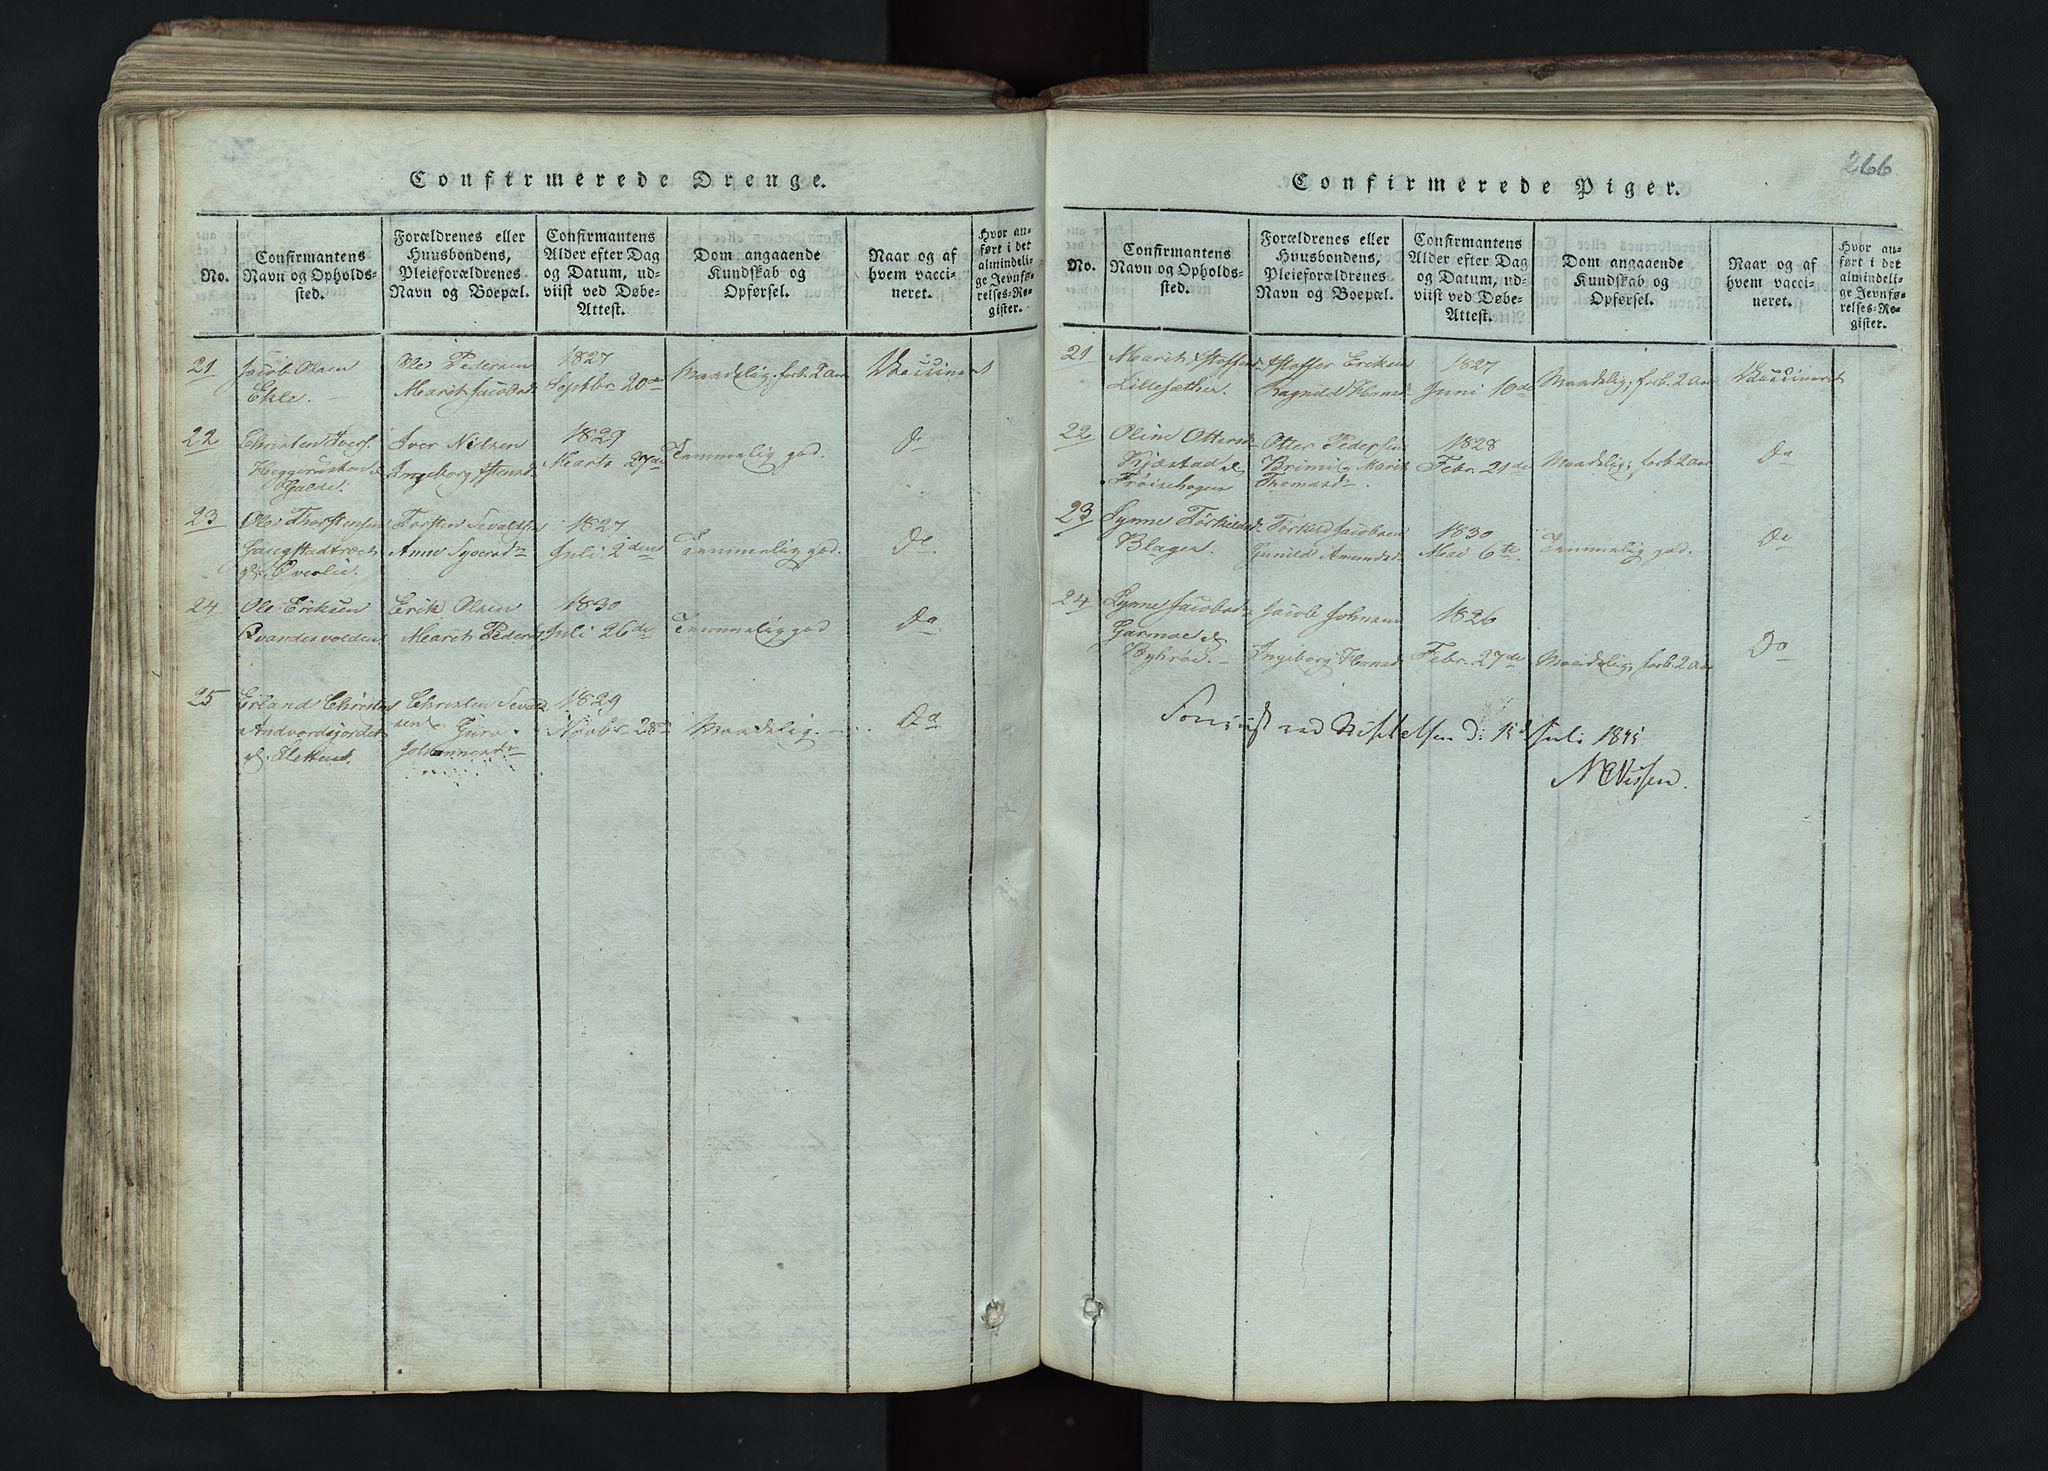 Confirmerede Drenge.
No.
Confirmantens
Navn og Opholds-
sted.
Forældrenes eller
Huusbondens,
Pleieforældrenes
Navn og Boepæl.
Confirmantens
Alder efter Dag
og Datum, ud-
viist ved Døbe-
Attest.
Dom angaaende
Kundskab og
Opførsel.
Naar og af
hvem vacci-
neret.
Hvor an-
ført i det
almindeli-
ge Jevnfø-
relses-Re-
gister.
21
Jacob Olsen
Ekle.
Ole Pedersen
Marit Jacobsd
1827
Septbr 20de
Maadelig. forb. 2 Aar
Vaccineret
22
Christen Ivers.
Galde.
Iver Nielsen
Ingeborg
1829
Marts 27de
Temmelig god.
Do
23
Ole Thorstensen
Torsten Sevalds
Anne
1827
Juli 2den
Temmelig god.
Do
24
Ole Eriksen
Erik Olsen
Marit Peders
1830
Juli 26de
Temmelig god
Do
25
Erland Christens
Christen Sevald
sen Guro
Johannesd
1829
Novbr. 28de
Maadelig.
Do
266
Confirmerede Piger.
No.
Confirmantens
Navn og Opholds-
sted.
Forældrenes eller
Huusbondens,
Pleieforældrenes
Navn og Boepæl.
Confirmantens
Alder efter Dag
og Datum, ud-
viist ved Døbe-
Attest.
Dom angaaende
Kundskab og
Opførsel.
Naar og af
hvem vacci-
neret.
Hvor an-
ført i det
almindeli-
ge Jevnfø-
relses-Re-
gister.
21
Marit Stoffers
Lillesæther.
Stoffer Eriksen
Ragnild Hansd
1827
Juni 10de
Maadelig; forb. 2 Aar
Vaccineret
22
Olim Ottersd
Kjæstad
Frøisehogen
Otter Pedersen
Brimi & Marit
Thomasd
1828
Febr. 21de
Maadelig; forb. 2 Aar
Do
23
Synne Törkildsd
Blager.
Törkild Jacobsen
Gunild Amundsd
1830
Mai 6te.
Temmelig god.
Do
24
Synne Jacobsd
Garmoe
Jacob Johnsen
Ingeborg Hansd
1826
Febr. 27de
Maadelig; forb. 2 Aar
Do
ved d: 15 Juli 1845